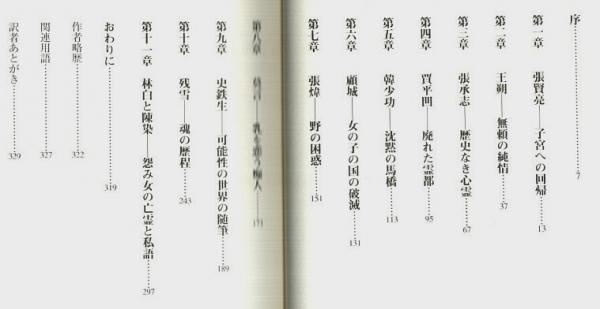 序………7
第一章　張賢亮――子宮への回帰………13
第二章　王朔――無頼の純情………37
第三章　張承志――歴史なき心霊………67
第四章　賈平凹――廃れた霊都………95
第五章　韓少功――沈黙の馬橋………113
第六章　顧城――女の子の国の破滅………131
第七章　張煒――野の困惑………151
第八章　莫言――乳を　う痴人………171
第九章　史鉄生――可能性の世界の随筆………189
第十章　残雪――魂の歴程………243
第十一章　林白と陳染――怨み女の亡霊と私語………297
おわりに………319
作者略歴………322
関連用語………327
訳者あとがき………329